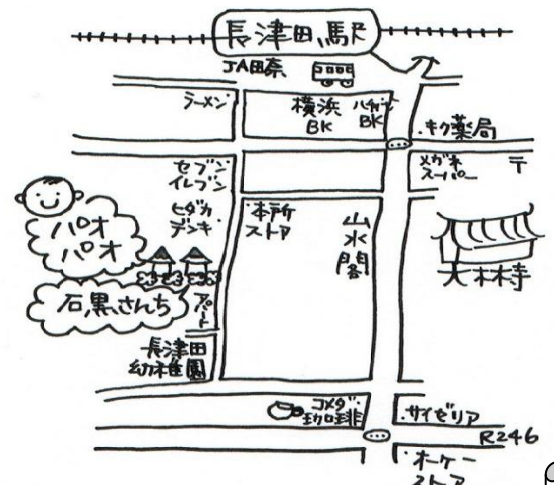 長津田駅
JA田奈
ラーメン
横浜
BK
BK
キク薬局
メガネ
スーパー
〒
セブン
イレブン
ヒダカ
デンキ
本所
ストア
山
水
閣
大林寺
パオ
パオ
石黒さんち
アパート
長津田
幼稚園
コメダ
珈琲
サイゼリア
R246
オーケー
ストア